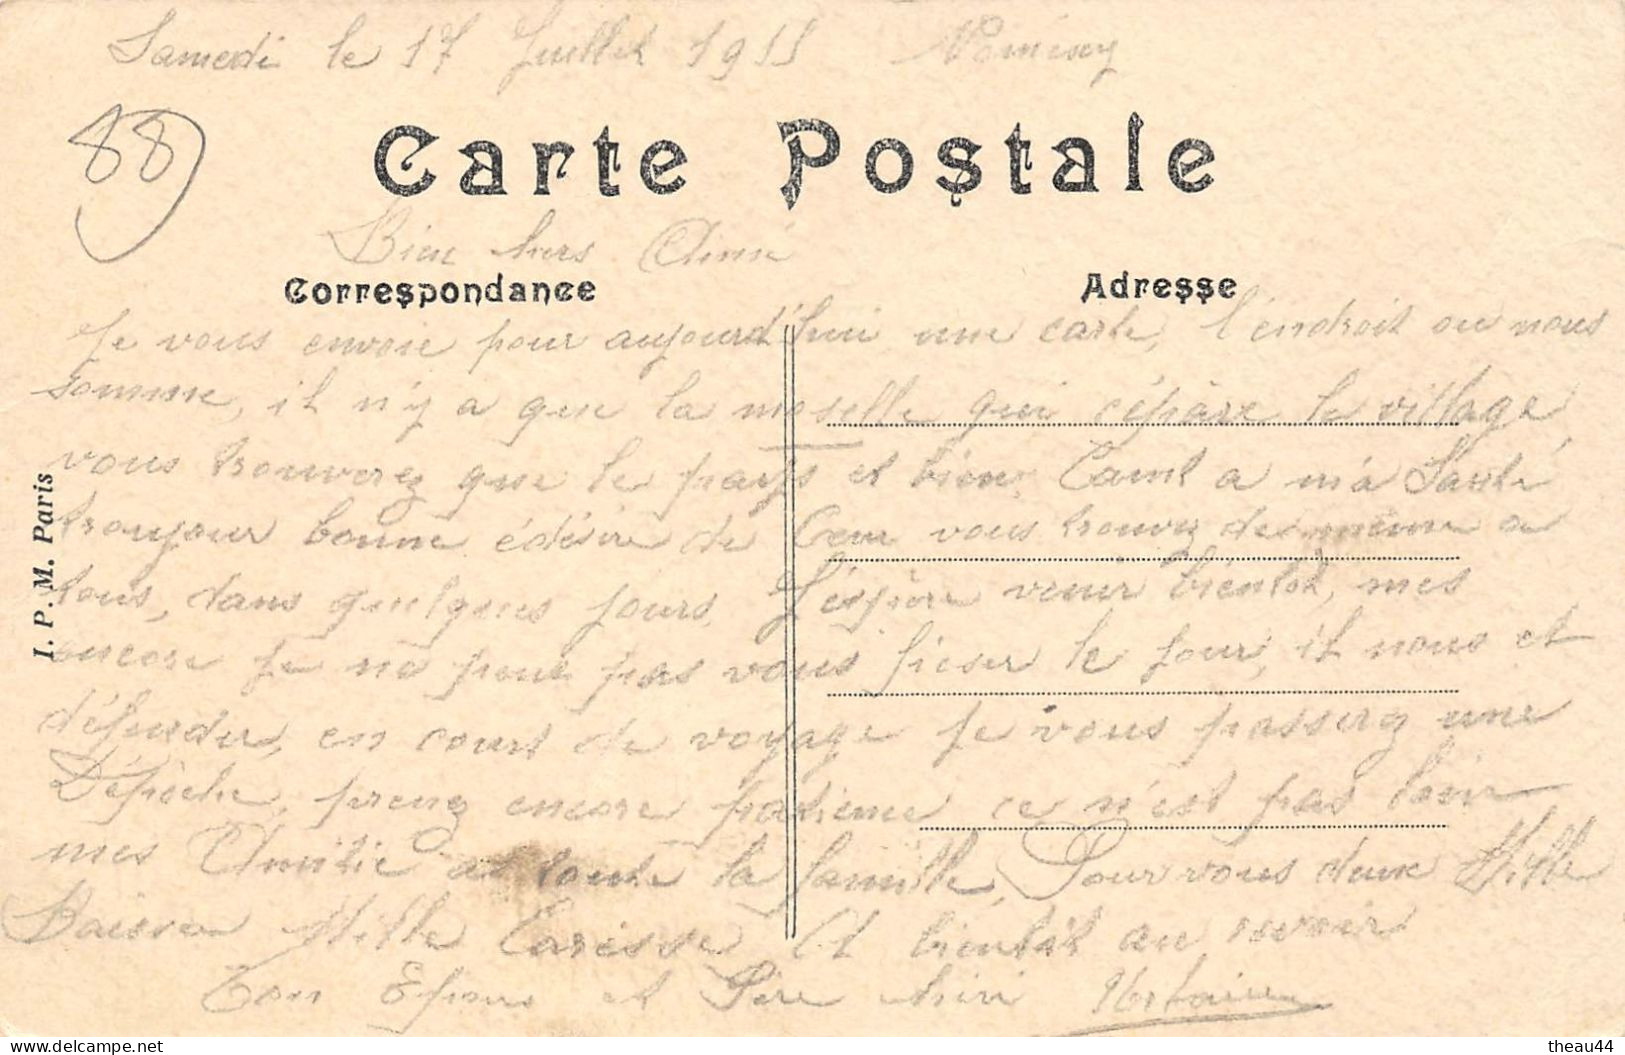 Samedi le 17 Juillet 1915 Nomexy
88
Carte Postale
Bien chers Aimé
Correspondance
Adresse
Je vous envoie pour aujourd'hui une carte, l'endroit ou nous
somme, il n'y a que la moselle qui cépare le village,
vous trouverez que le pays et bien, Cant a m'a Santé
troujour bonne édésire de Ceur vous trouvez de même a
tous, dans quelques jours, J'éspère venir bientot, mes
encore je ne peut pas vous ficser le jour, il nous et
défender, en court de voyage je vous passerez une
Dépèche, prenez encore patience ce n'est pas loin
mes Amitié at toute la famille, Pour vous deux Mille
Baiser Mille Caresse Et bientôt au revoir
Ton Epous et Père chéri
I. P. M. Paris
theau44